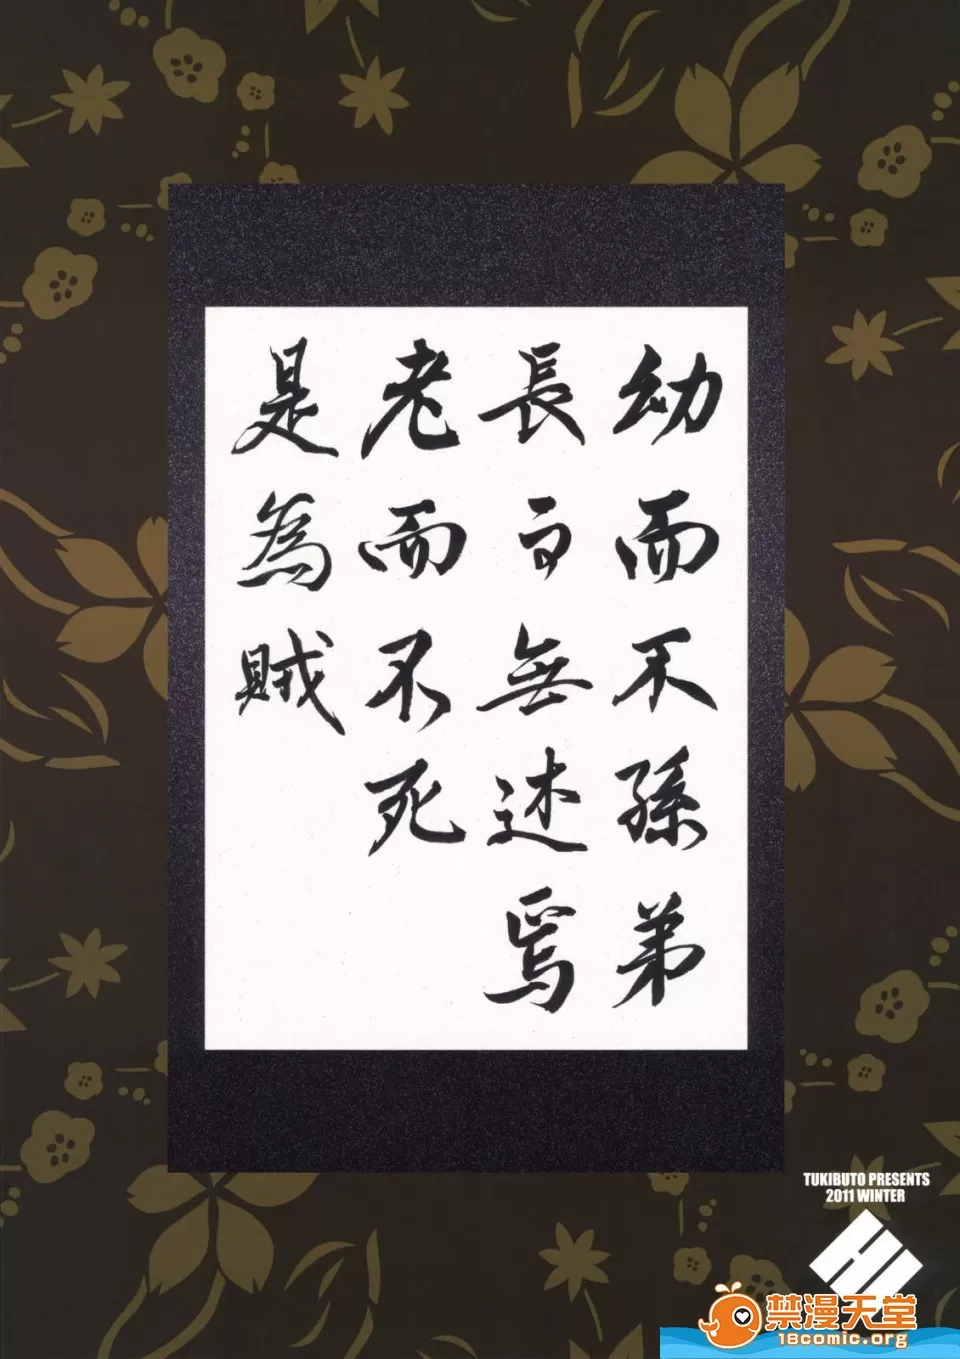 幼而不孫弟
長而無述焉
老而不死
是為賊
TUKIBUTO PRESENTS
2011 WINTER
禁漫天堂
18comic.org